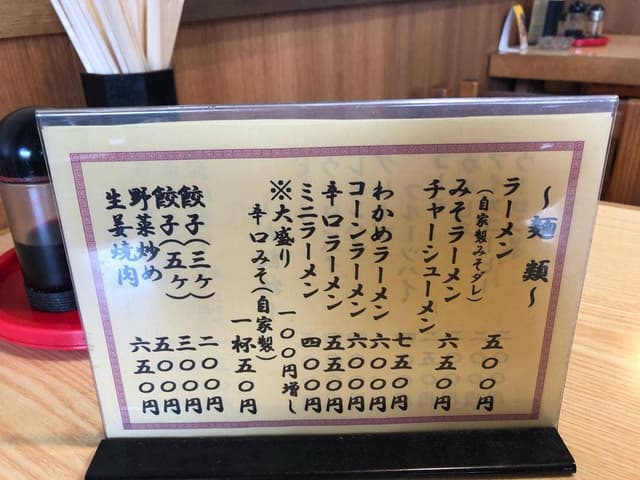 〜麺類〜
ラーメン 五〇〇円
(自家製みそダレ)
みそラーメン 六五〇円
チャーシューメン 七五〇円
わかめラーメン 六〇〇円
コーンラーメン 六〇〇円
辛口ラーメン 五五〇円
ミニラーメン 四〇〇円
※大盛り 一〇〇円増し
辛口みそ(自家製) 一杯五〇円
餃子(三ヶ) 二〇〇円
餃子(五ヶ) 三〇〇円
野菜炒め 五〇〇円
生姜焼肉 六五〇円